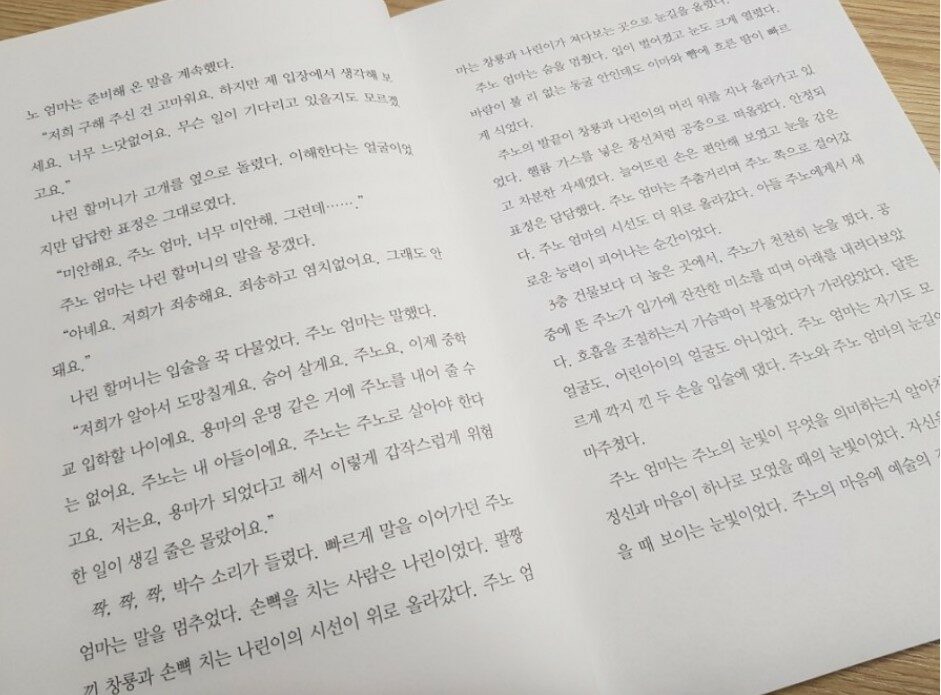 노 엄마는 준비해 온 말을 계속했다.
“저희 구해 주신 건 고마워요. 하지만 제 입장에서 생각해 보
세요. 너무 느닷없어요. 무슨 일이 기다리고 있을지도 모르겠
고요.”
나린 할머니가 고개를 옆으로 돌렸다. 이해한다는 얼굴이었
지만 답답한 표정은 그대로였다.
“미안해요, 주노 엄마, 너무 미안해. 그런데…….”
주노 엄마는 나린 할머니의 말을 뭉갰다.
“아녜요. 저희가 죄송해요. 죄송하고 염치없어요. 그래도 안
돼요.”
나린 할머니는 입술을 꾹 다물었다. 주노 엄마는 말했다.
“저희가 알아서 도망칠게요. 숨어 살게요. 주노요, 이제 중학
교 입학할 나이에요. 용마의 운명 같은 거에 주노를 내어 줄 수
는 없어요. 주노는 내 아들이에요. 주노는 주노로 살아야 한다
고요. 저는요, 용마가 되었다고 해서 이렇게 갑작스럽게 위험
한 일이 생길 줄은 몰랐어요.”
짝, 짝, 짝, 박수 소리가 들렸다. 빠르게 말을 이어가던 주노
엄마는 말을 멈추었다. 손뼉을 치는 사람은 나린이였다. 팔짱
끼 창룡과 손뼉 치는 나린이의 시선이 위로 올라갔다. 주노 엄
마는 창룡과 나린이가 쳐다보는 곳으로 눈길을 올렸다.
주노 엄마는 숨을 멈췄다. 입이 벌어졌고 눈도 크게 열렸다.
바람이 불 리 없는 동굴 안인데도 이마와 뺨에 흐른 땀이 빠르
게 식었다.
주노의 발끝이 창룡과 나린이의 머리 위를 지나 올라가고 있
었다. 헬륨 가스를 넣은 풍선처럼 공중으로 떠올랐다. 안정되
고 차분한 자세였다. 늘어뜨린 손은 편안해 보였고 눈을 감은
표정은 담담했다. 주노 엄마는 주춤거리며 주노 쪽으로 걸어갔
다. 주노 엄마의 시선도 더 위로 올라갔다. 아들 주노에게서 새
로운 능력이 피어나는 순간이었다.
3층 건물보다 더 높은 곳에서, 주노가 천천히 눈을 떴다. 공
중에 뜬 주노가 입가에 잔잔한 미소를 띠며 아래를 내려다보았
다. 호흡을 조절하는지 가슴팍이 부풀었다가 가라앉았다. 달뜬
얼굴도, 어린아이의 얼굴도 아니었다. 주노 엄마는 자기도 모
르게 깍지 낀 두 손을 입술에 댔다. 주노와 주노 엄마의 눈길이
마주쳤다.
주노 엄마는 주노의 눈빛이 무엇을 의미하는지 알아차
정신과 마음이 하나로 모였을 때의 눈빛이었다. 자신을
을 때 보이는 눈빛이었다. 주노의 마음에 예술의